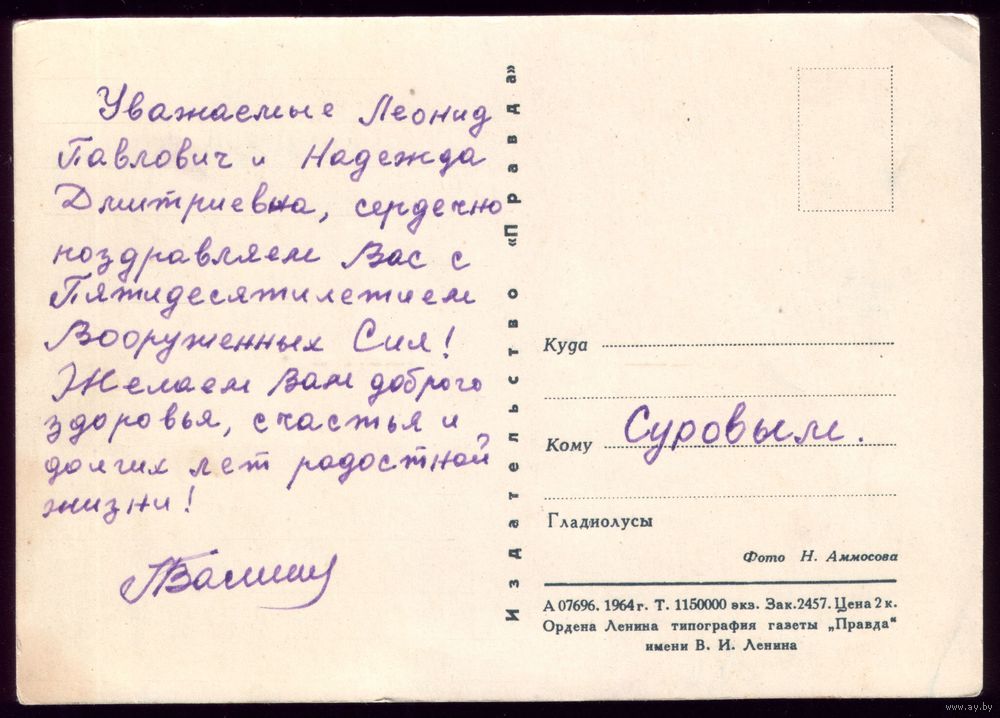 Уважаемые Леонид
Павлович и Надежда
Дмитриевна, сердечно
поздравляем Вас с
Пятидесятилетием
Вооруженных Сил!
Желаем Вам доброго
здоровья, счастья и
долгих лет радостной
жизни!
Издательство «Правда»
Куда
Кому Суровым.
Гладиолусы
Фото Н. Аммосова
А 07696. 1964 г. Т. 1150000 экз. Зак. 2457. Цена 2 к.
Ордена Ленина типография газеты „Правда“
имени В. И. Ленина
www.ay.by